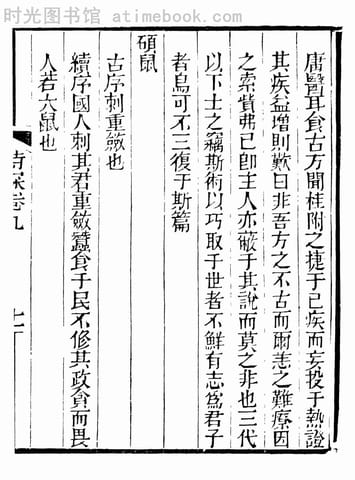 时光图书馆 atimebook.com
庸醫耳食古方聞桂附之捷于已疾而妄投于熱證
其疾益增則歎曰非吾方之不古而爾恙之難療因
之索貲弗已卽主人亦蔽于其說而莫之非也三代
以下士之竊斯術以巧取于世者不鮮有志爲君子
者烏可不三復于斯篇
碩鼠
古序刺重斂也
續序國人刺其君重斂蠶食于民不修其政貪而畏
人若大鼠也
卷九